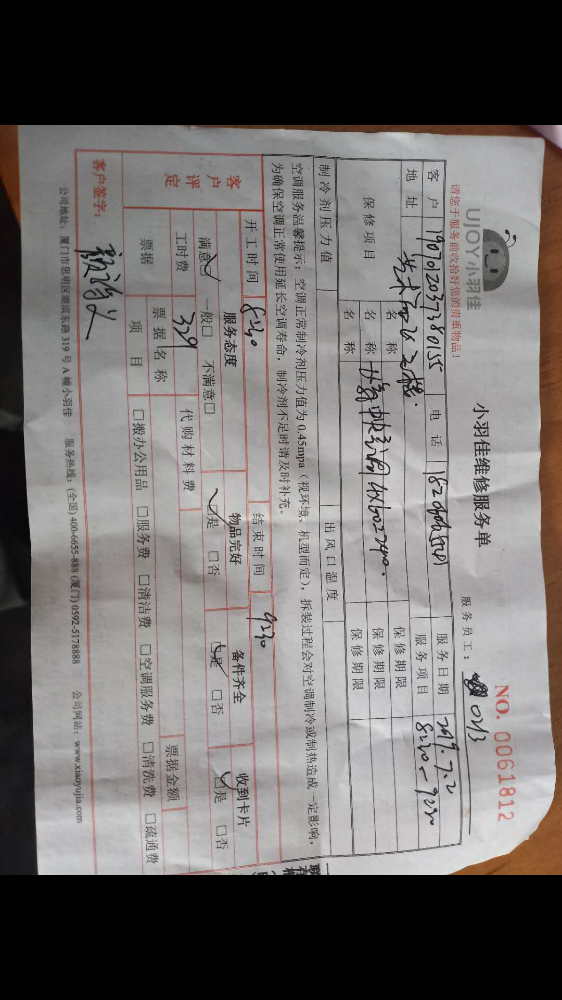 UJOY小羽佳
小羽佳维修服务单
NO. 0061812
请您于服务前收拾好您的贵重物品!
服务员工: 0213
客户 电话 服务日期 2019.7.2
地址 服务项目 8:30-9:30
保修项目 名称 保修期限
名称 保修期限
名称 保修期限
制冷剂压力值 出风口温度
空调服务温馨提示:空调正常制冷剂压力值为 0.45mpa(视环境、机型而定),拆装过程会对空调制冷或制热造成一定影响,
为确保空调正常使用延长空调寿命,制冷剂不足时请及时补充。
开工时间 8:30 结束时间 9:30
客户评定
服务态度 物品完好 备件齐全 收到卡片
满意☑ 一般□ 不满意□ ☑是 □否 ☑是 □否 ☑是 □否
工时费 329 代购材料费 票据金额
票据 票据名称
项目 □搬办公用品 □服务费 □清洁费 □空调服务费 □清洗费 □疏通费
客户签字:
公司地址:厦门市思明区湖滨东路 319 号 A 幢小羽佳 服务热线:(全国) 400-6655-888 (厦门) 0592-5178888 公司网站:www.xiaoyujia.com